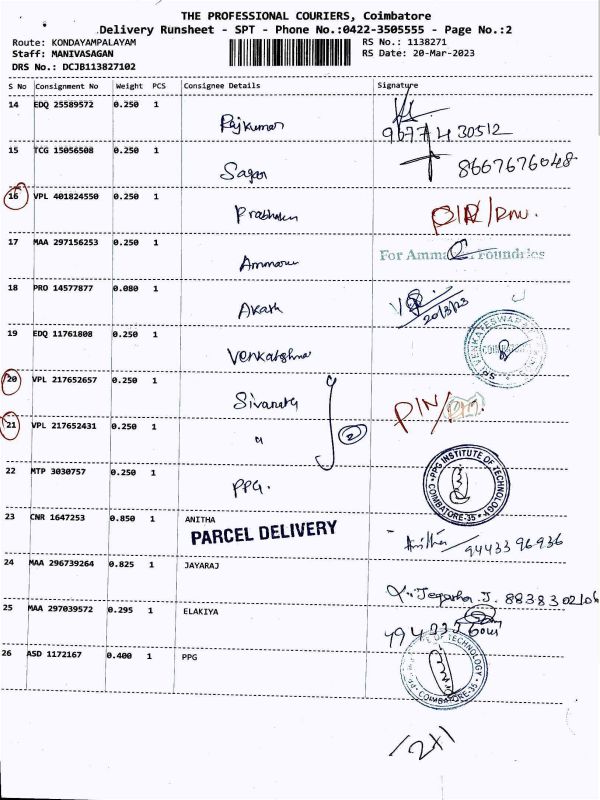 THE PROFESSIONAL COURIERS, Coimbatore
Delivery Runsheet - SPT - Phone No.:0422-3505555 - Page No.:2
Route: KONDAYAMPALAYAM
RS No.: 1138271
Staff: MANIVASAGAN
RS Date: 20-Mar-2023
DRS No.: DCJB113827102
S No Consignment No Weight PCS Consignee Details Signature
14 EDQ 25589572 0.250 1
Rajkumar
9677430512
15 TCG 15056508 0.250 1
Sagar
8667676048
16 VPL 401824550 0.250 1
Prabhakn
17 MAA 297156253 0.250 1
For Amma Foundries
18 PRO 14577877 0.080 1
Akash
20/3/23
19 EDQ 11761808 0.250 1
Venkatshna
SRI VENKATESWARA
COIMBATORE
20 VPL 217652657 0.250 1
PIN/
21 VPL 217652431 0.250 1
2
22 MTP 3030757 0.250 1
PPG.
PPG INSTITUTE OF TECHNOLOGY
COIMBATORE-35
23 CNR 1647253 0.850 1 ANITHA
PARCEL DELIVERY
Anitha 9443396936
24 MAA 296739264 0.825 1 JAYARAJ
J. 8838302106
25 MAA 297039572 0.295 1 ELAKIYA
26 ASD 1172167 0.400 1 PPG
OF TECHNOLOGY
COIMBATORE-35
2x1